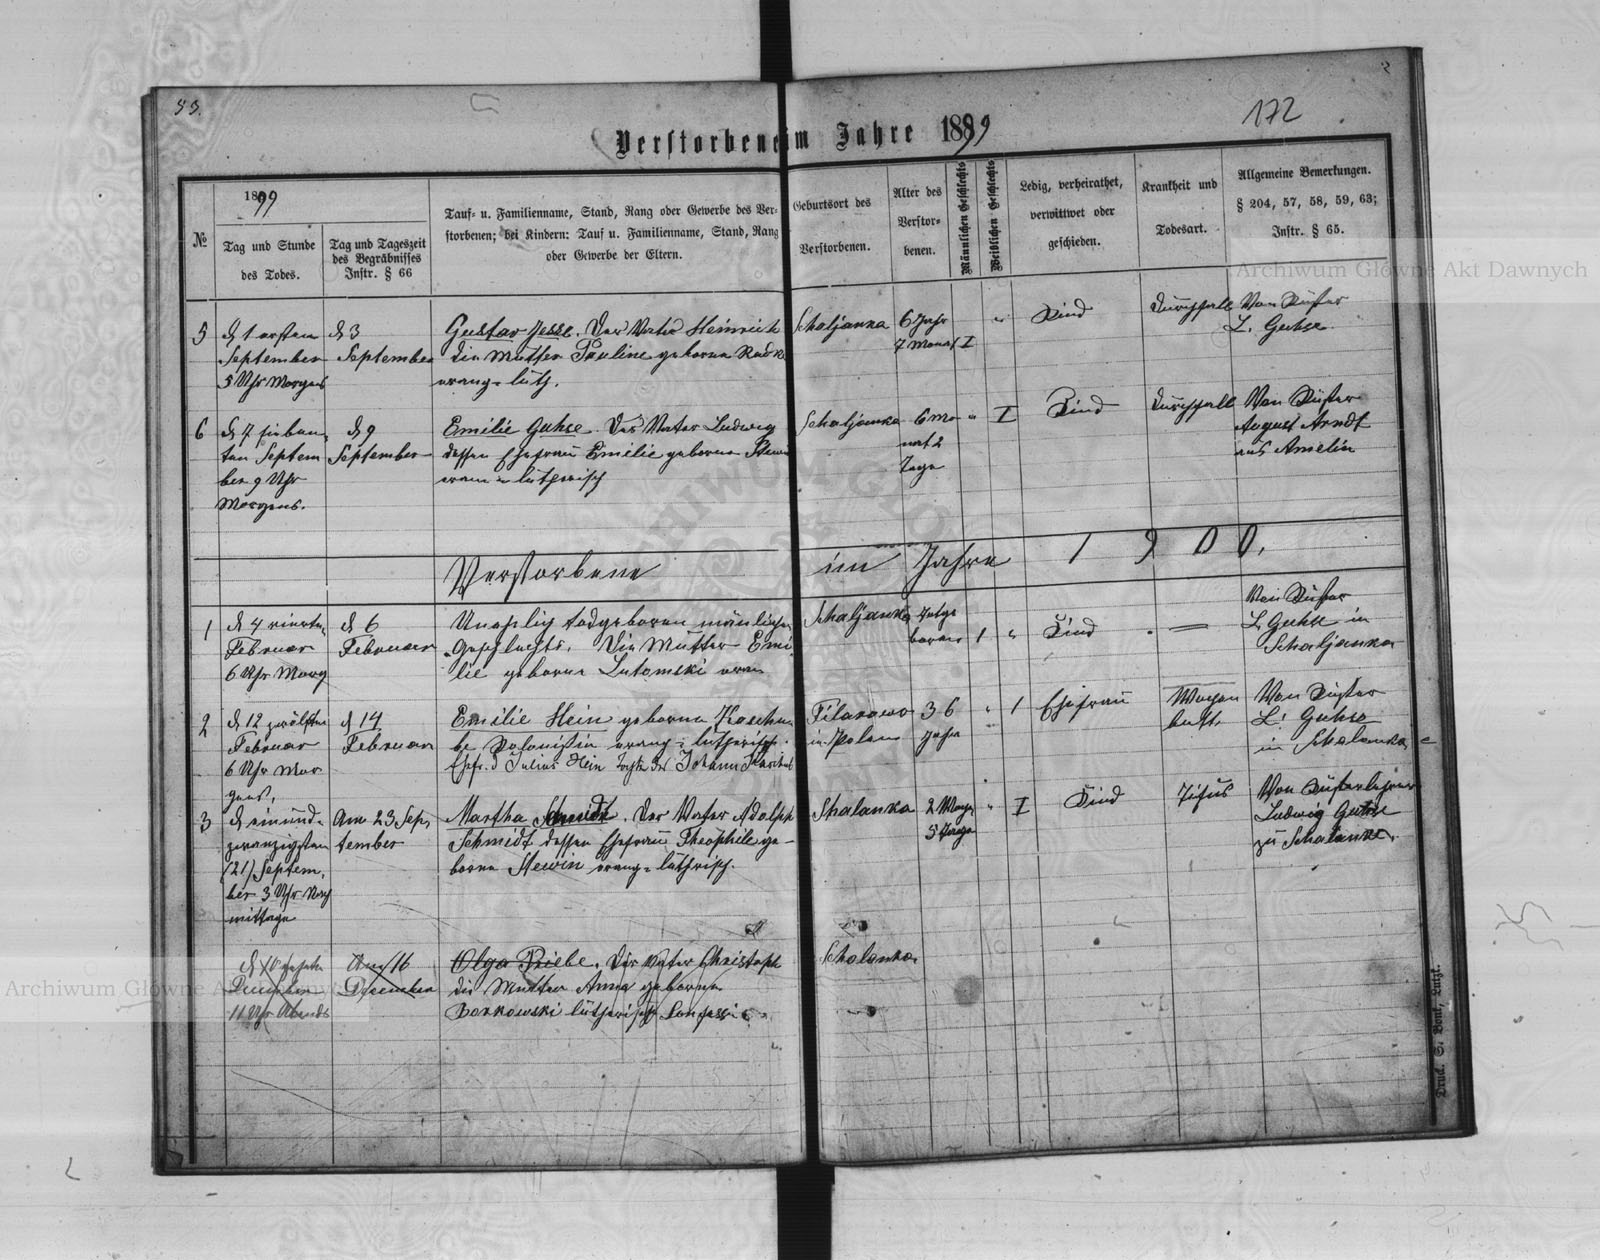 53.
172
2
Verstorbene im Jahre 1899
№
1899
Tag und Stunde
des Todes.
Tag und Tageszeit
des Begräbnisses
Instr. § 66
Tauf- u. Familienname, Stand, Rang oder Gewerbe des Ver-
storbenen; bei Kindern: Tauf u. Familienname, Stand, Rang
oder Gewerbe der Eltern.
Geburtsort des
Verstorbenen.
Alter des
Verstor-
benen.
Männlichen Geschlechts
Weiblichen Geschlechts
Ledig, verheirathet,
verwittwet oder
geschieden.
Krankheit und
Todesart.
Allgemeine Bemerkungen.
§ 204, 57, 58, 59, 63;
Instr. § 65.
5
d 1 ersten
September
5 Uhr Morgens
d 3
September
Gustav Jesse. Der Vater Heinrich
die Mutter Pauline geborene
evang-luth.
Schaljanka
6 Jahr
7 Monat
I
"
Kind
Durchfall
Von Küster
L. Guhse
6
d 7 sieben-
ten Septem
ber 9 Uhr
Morgens.
d 9
September
Emilie Guhse. Der Vater Ludwig
dessen Ehefrau Emilie geborene
evan-lutherisch
Schaljanka
6 Mo
nat 2
Tage
"
I
Kind
Durchfall
Von Küster
August Arndt
aus Amelin
Verstorbene im Jahre 1900.
1
d 4 vierten
Februar
6 Uhr Morg
d 6
Februar
todgeboren männlichen
Geschlechts. Die Mutter Emi-
lie geborene Lutomski evan
Schaljanka
Totge
boren
1
"
Kind
Von Küster
L Guhse in
Schaljanka
2
d 12 zwölften
Februar
6 Uhr Mor
gens.
d 14
Februar
Emilie Hein geborene
be Kolonistin evang-lutherisch.
Ehefr. d Julius Hein Tochter des Johann
Filanowo
in Polen
36
Jahr
"
1
Ehefrau
Wochen
bett.
Von Küster
L. Guhse
in Schalanka
3
d einund-
zwanzigsten
(21) Septem
ber 3 Uhr Nach
mittage
Am 23 Sep
tember
Martha Schmidt. Der Vater Adolph
Schmidt dessen Ehefrau Theophile ge-
borene Stewin evang-luthrisch.
Schalanka
2 Woche
5 Tage
"
I
Kind
Tifus
Von Küsterlehrer
Ludwig Guhse
zu Schalanka.
Dezember
11 Uhr Abends
Am 16
Dezember
Olga Priebe. Der Vater Christoph
die Mutter Anna geborene
Borkowski lutherisch
Schalanka
Druck. S. Bont, Lutzk.
Archiwum Główne Akt Dawnych
Archiwum Główne Akt Dawnych